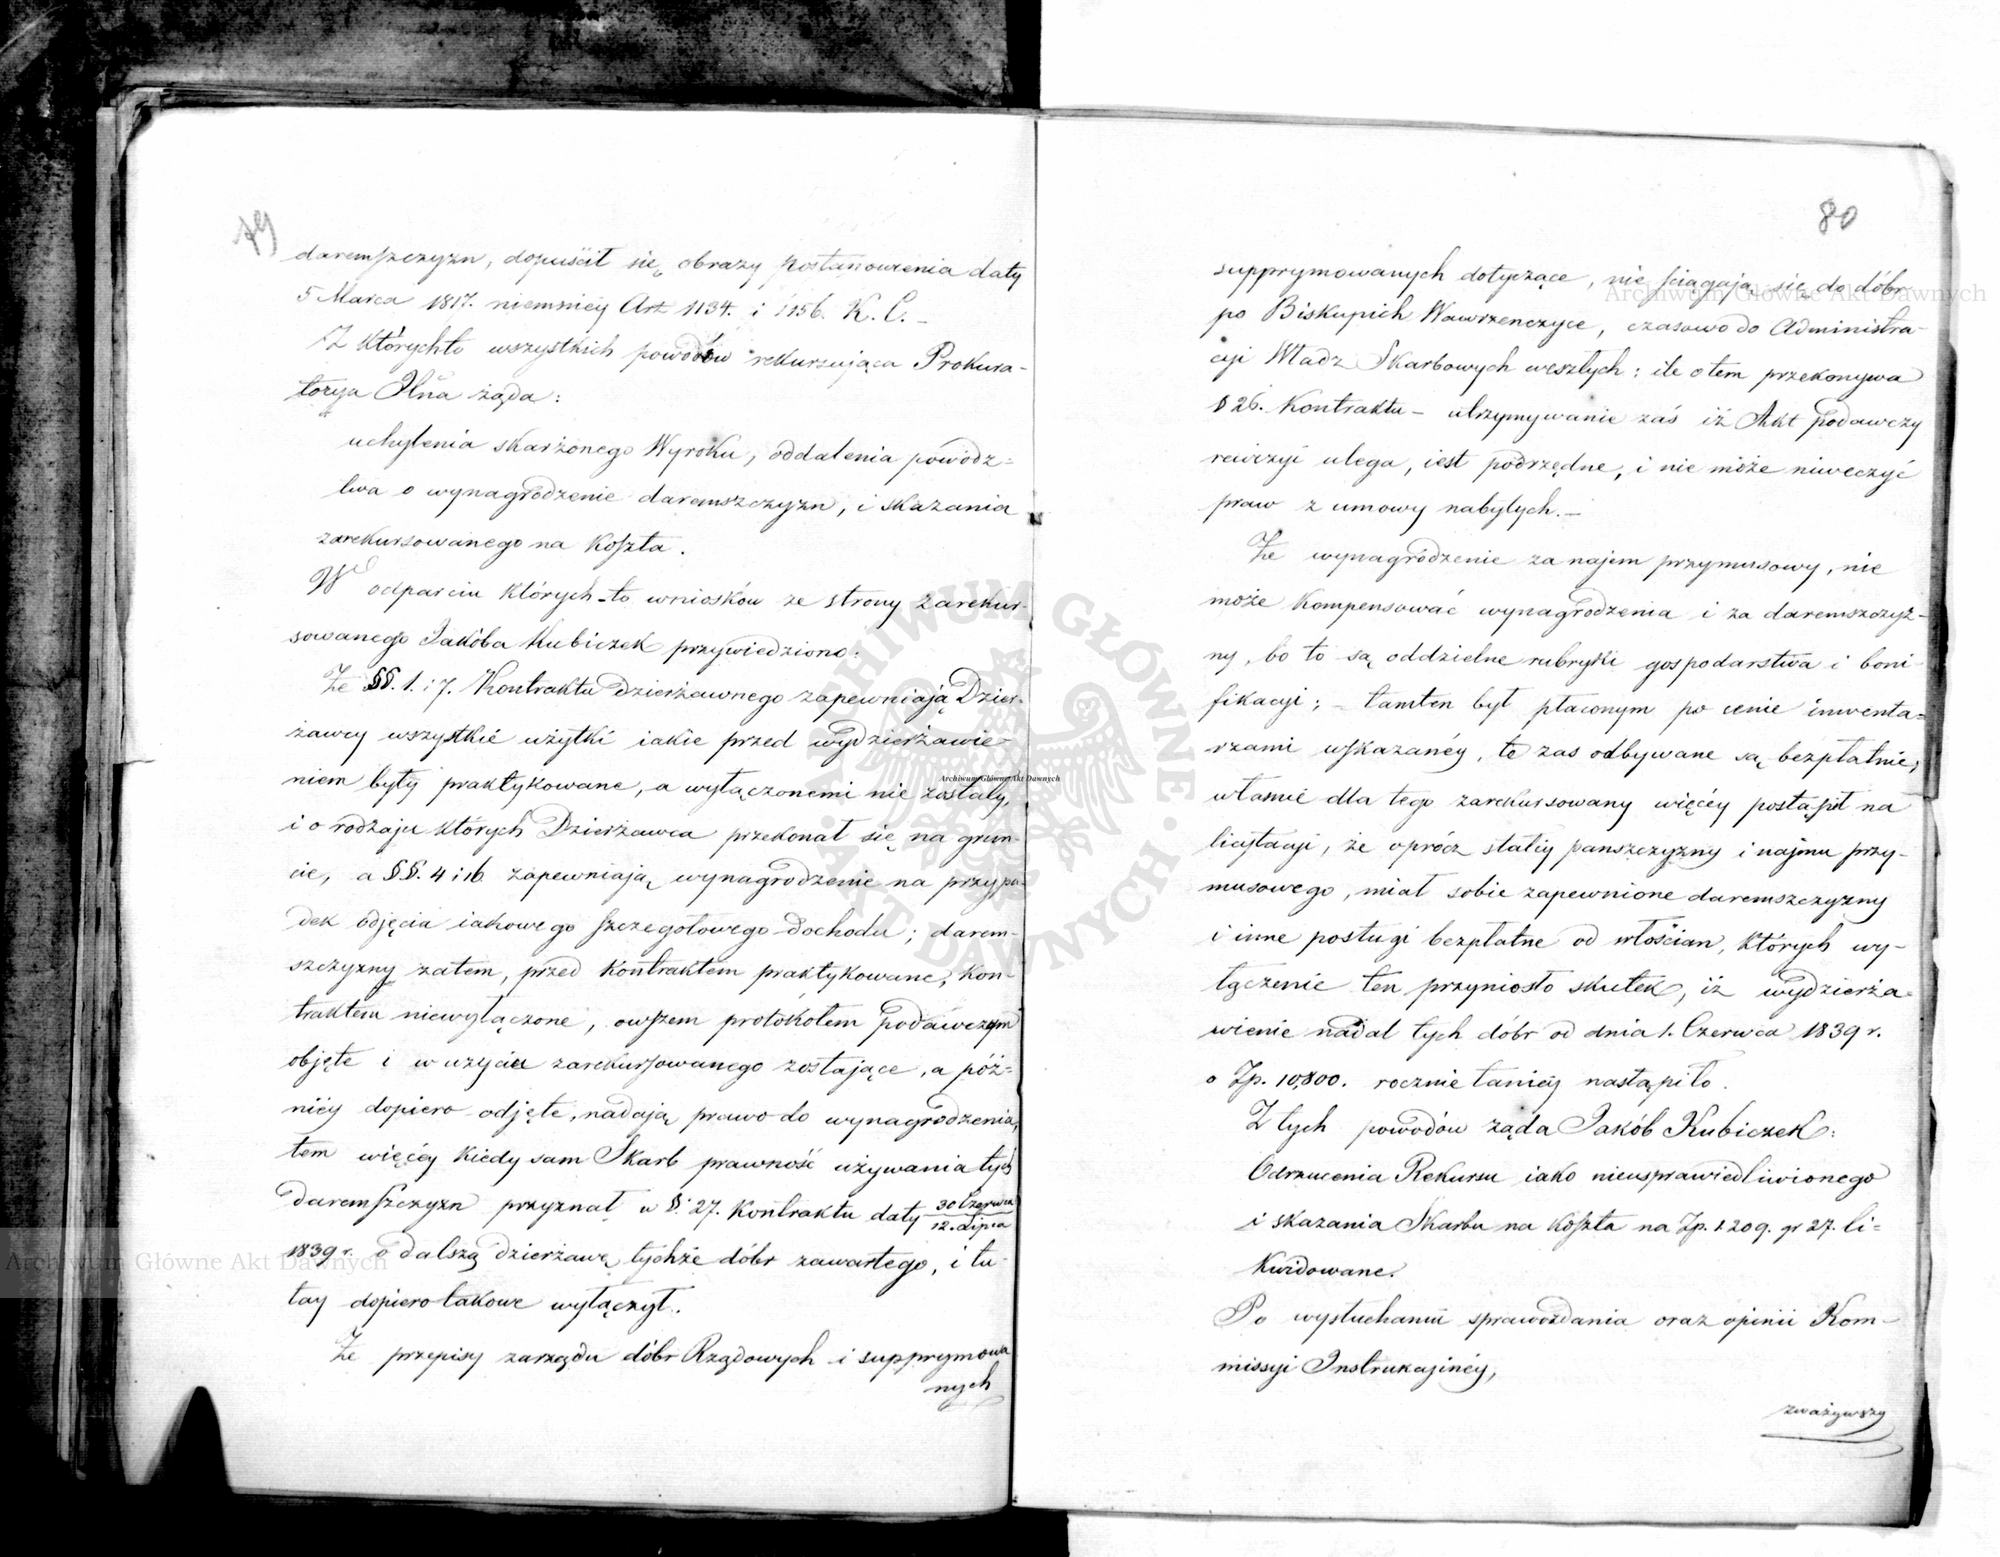 79
daremszczyzn, dopuścił się obrazy postanowienia daty
5 Marca 1817. niemniéy Art 1134. i 1156. K. C. –
Z którychto wszystkich powodów rekursująca Prokura-
torya Jlna żąda:
uchylenia skarżonego Wyroku, oddalenia powódz-
twa o wynagrodzenie daremszczyzn, i skazania
zarekursowanego na koszta.
W odparciu których-to wniosków ze strony zarekur-
sowanego Jakóba Kubiczek przywiedziono:
Że §§. 1. i 7. Kontraktu Dzierżawnego zapewniają Dzier-
żawcy wszystkie użytki iakie przed wydzierżawie-
niem były praktykowane, a wyłączonemi nie zostały,
i o rodzaju których Dzierżawca przekonał się na grun-
cie, a §§. 4 i 16 zapewniają wynagrodzenie na przypa-
dek odjęcia iakowego szczegółowego dochodu; darem-
szczyzny zatem, przed kontraktem praktykowane, kon-
traktem niewyłączone, owszem protokółem podawczym
objęte i w użyciu zarekursowanego zostające, a póź-
niéy dopiero odjęte, nadają prawo do wynagrodzenia,
tem więcéy kiedy sam Skarb prawność używania tych
daremszczyzn przyznał w §. 27. Kontraktu daty 30 Czerwca
12. Lipca
1839 r. o dalszą dzierżawę tychże dóbr zawartego, i tu-
tay dopiero takowe wyłączył.
Że przepisy zarządu dóbr Rządowych i supprymowa
nych
80
supprymowanych dotyczące, nie ściągają się do dóbr
po Biskupich Wawrzenczyce, czasowo do Administra-
cyi Władz Skarbowych weszłych: ile o tem przekonywa
§ 26. Kontraktu – utrzymywanie zaś iż Akt podawczy
rewizyi ulega, iest podrzędne, i nie może niweczyć
praw z umowy nabytych. –
Że wynagrodzenie za najem przymusowy, nie
może kompensować wynagrodzenia i za daremszczyz-
ny, bo to są oddzielne rubryki gospodarstwa i boni-
fikacyi; – tamten był płaconym po cenie inwenta-
rzami wskazanéy, te zas odbywane są bezpłatnie;
własnie dla tego zarekursowany więcéy postąpił na
licytacyi, że oprócz stałéy panszczyzny i najmu przy-
musowego, miał sobie zapewnione daremszczyzny
i inne posługi bezpłatne od włościan, których wy-
łączenie ten przyniosło skutek, iż wydzierża-
wienie nadal tych dóbr od dnia 1. Czerwca 1839 r.
o Zp. 10,800. rocznie taniéy nastąpiło.
Z tych powodów żąda Jakób Kubiczek:
Odrzucenia Rekursu iako nieusprawiedliwionego
i skazania Skarbu na koszta na Zp. 1209. gr 27. li-
kwidowane.
Po wysłuchaniu sprawozdania oraz opinii Kom-
missyi Instrukcyjnéy,
zważywszy
Archiwum Główne Akt Dawnych
Archiwum Główne Akt Dawnych
Archiwum Główne Akt Dawnych
· ARCHIWUM GŁÓWNE · AKT DAWNYCH ·